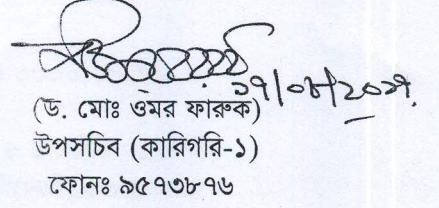 ১৭/০৮/২০১৭
(ড. মোঃ ওমর ফারুক)
উপসচিব (কারিগরি-১)
ফোনঃ ৯৫৭৩৮৭৬